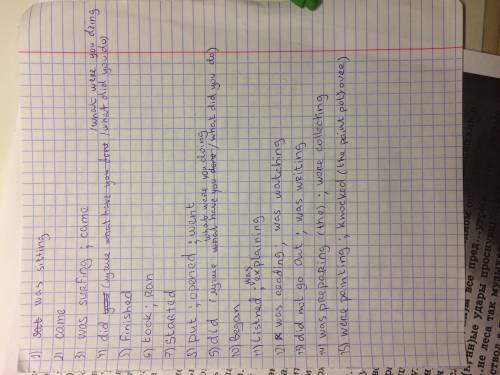 1) was sitting
2) came
3) was surfing ; came
/ what were you doing
4) did (думаю what have you done / what did you do)
5) Finished
6) took ; ran
7) started
8) put ; opened ; went
what were you doing
9) did (думаю what have you done / what did you do)
10) Began
was
11) listned ; explaining
12) was reading ; was watching
13) did not go out ; was writing
14) was preparing (the) ; were collecting
15) were painting ; knocked (the paint pot) over)
все пред
ные удары
не леса так